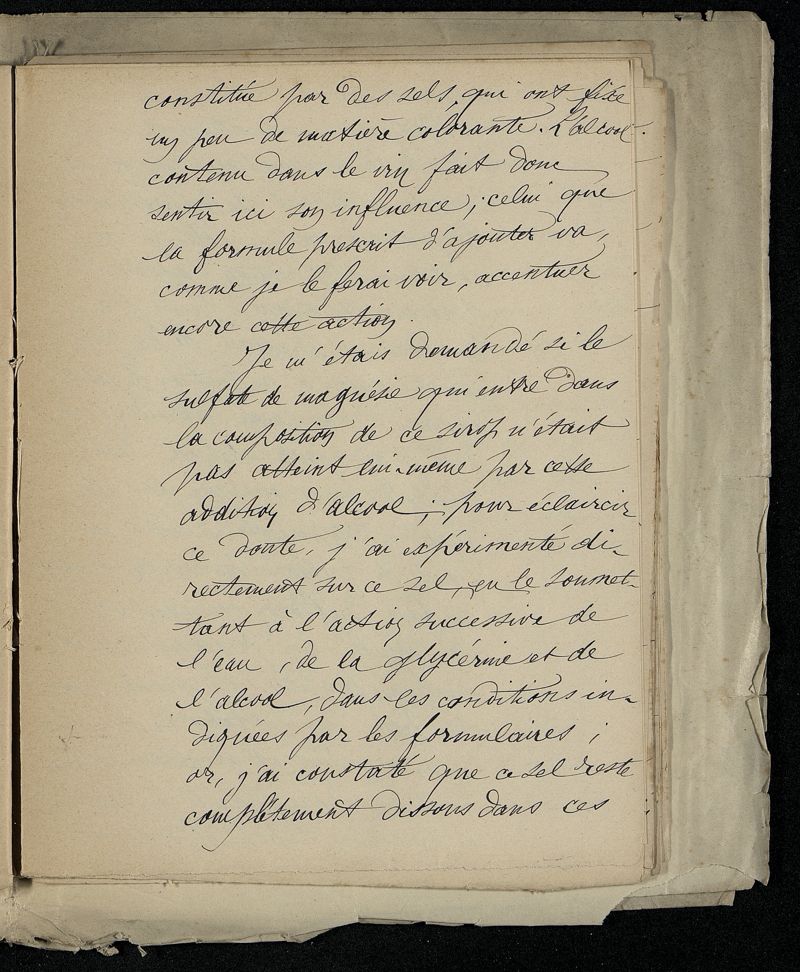 constituée par des sels, qui ont fixé
un peu de matière colorante. L'alcool
contenu dans le vin fait donc
sentir ici son influence ; celui que
la formule prescrit d'ajouter va,
comme je le ferai voir, accentuer
encore cette action.
Je m'étais demandé si le
sulfate de magnésie qui entre dans
la composition de ce sirop n'était
pas atteint lui-même par cette
addition d'alcool ; pour éclaircir
ce doute, j'ai expérimenté di-
rectement sur ce sel, en le soumet-
tant à l'action successive de
l'eau, de la glycérine et de
l'alcool, dans les conditions in-
diquées par les formulaires ;
or, j'ai constaté que ce sel reste
complètement dissous dans ces